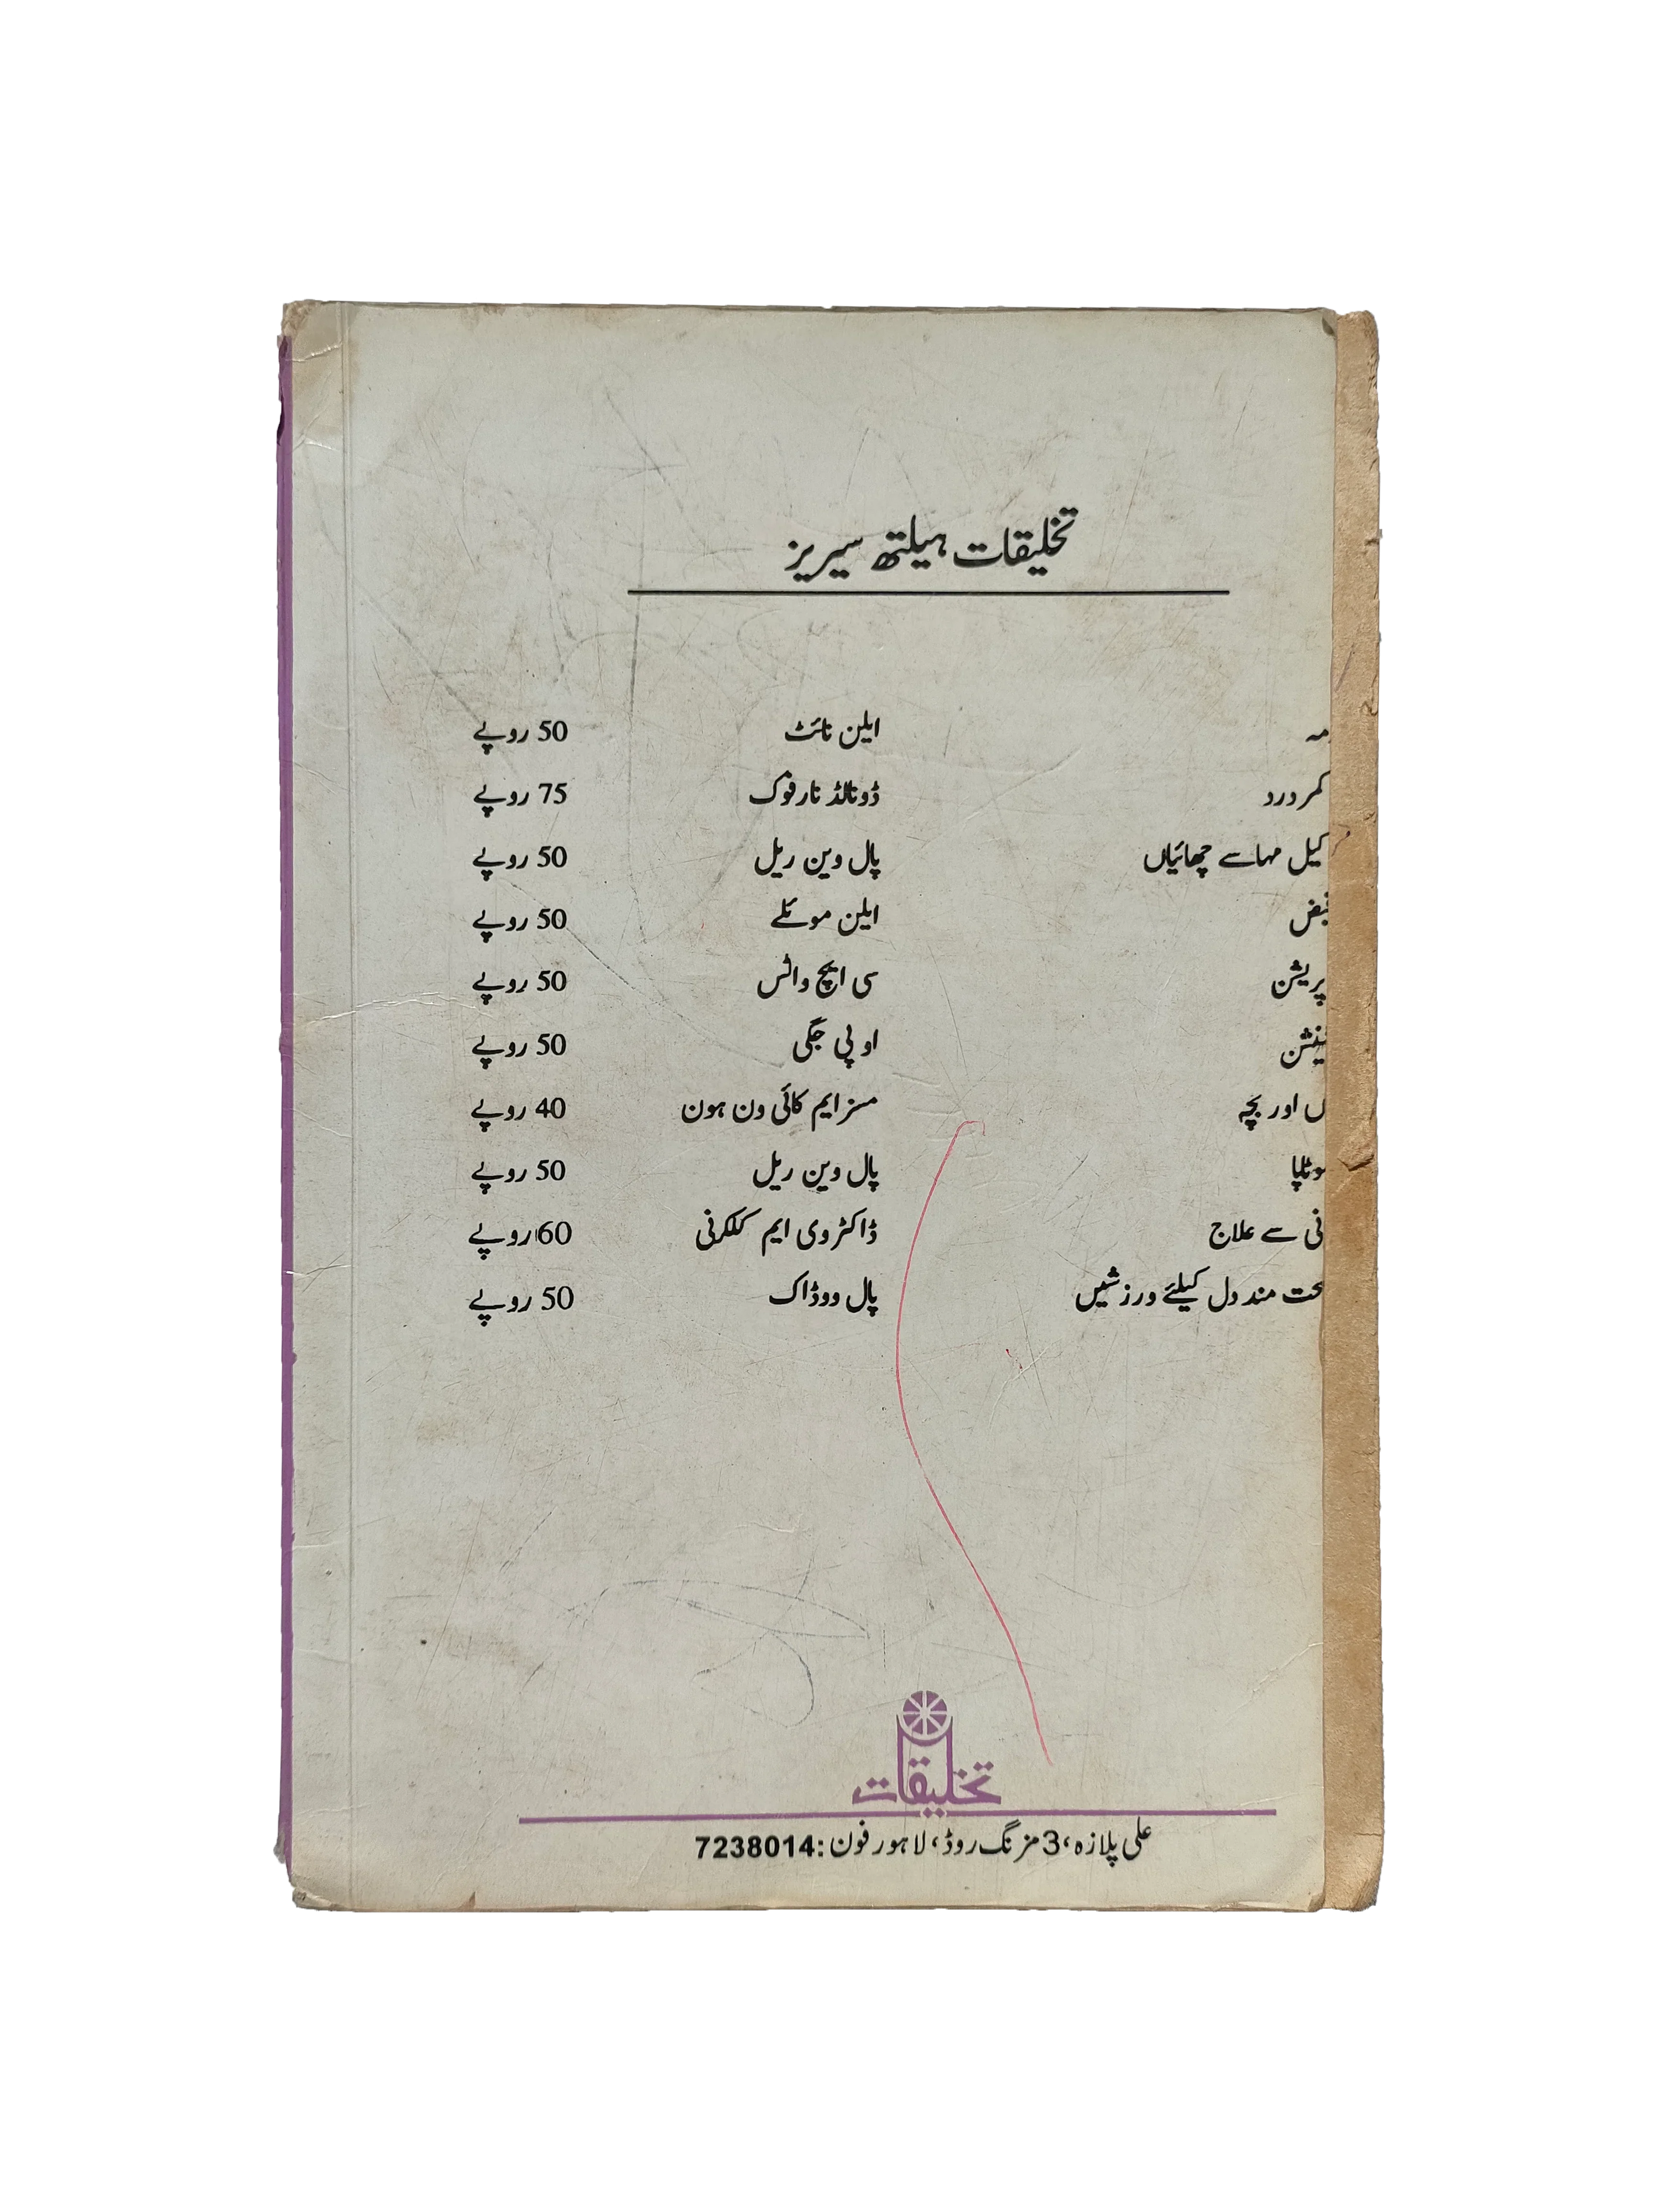 تخلیقات ہیلتھ سیریز
مہ ایلن نائٹ 50 روپے
کمر درد ڈونالڈ نارفوک 75 روپے
کیل مہاسے چھائیاں پال وین ریل 50 روپے
قبض ایلن موئلے 50 روپے
پریشن سی ایچ واٹس 50 روپے
ٹینشن او پی جگی 50 روپے
ں اور بچہ مسز ایم کائی ون ہون 40 روپے
موٹاپا پال وین ریل 50 روپے
نی سے علاج ڈاکٹر وی ایم کلکرنی 60 روپے
حت مند دل کیلئے ورزشیں پال ووڈاک 50 روپے
تخلیقات
علی پلازہ، 3 مزنگ روڈ، لاہور فون: 7238014